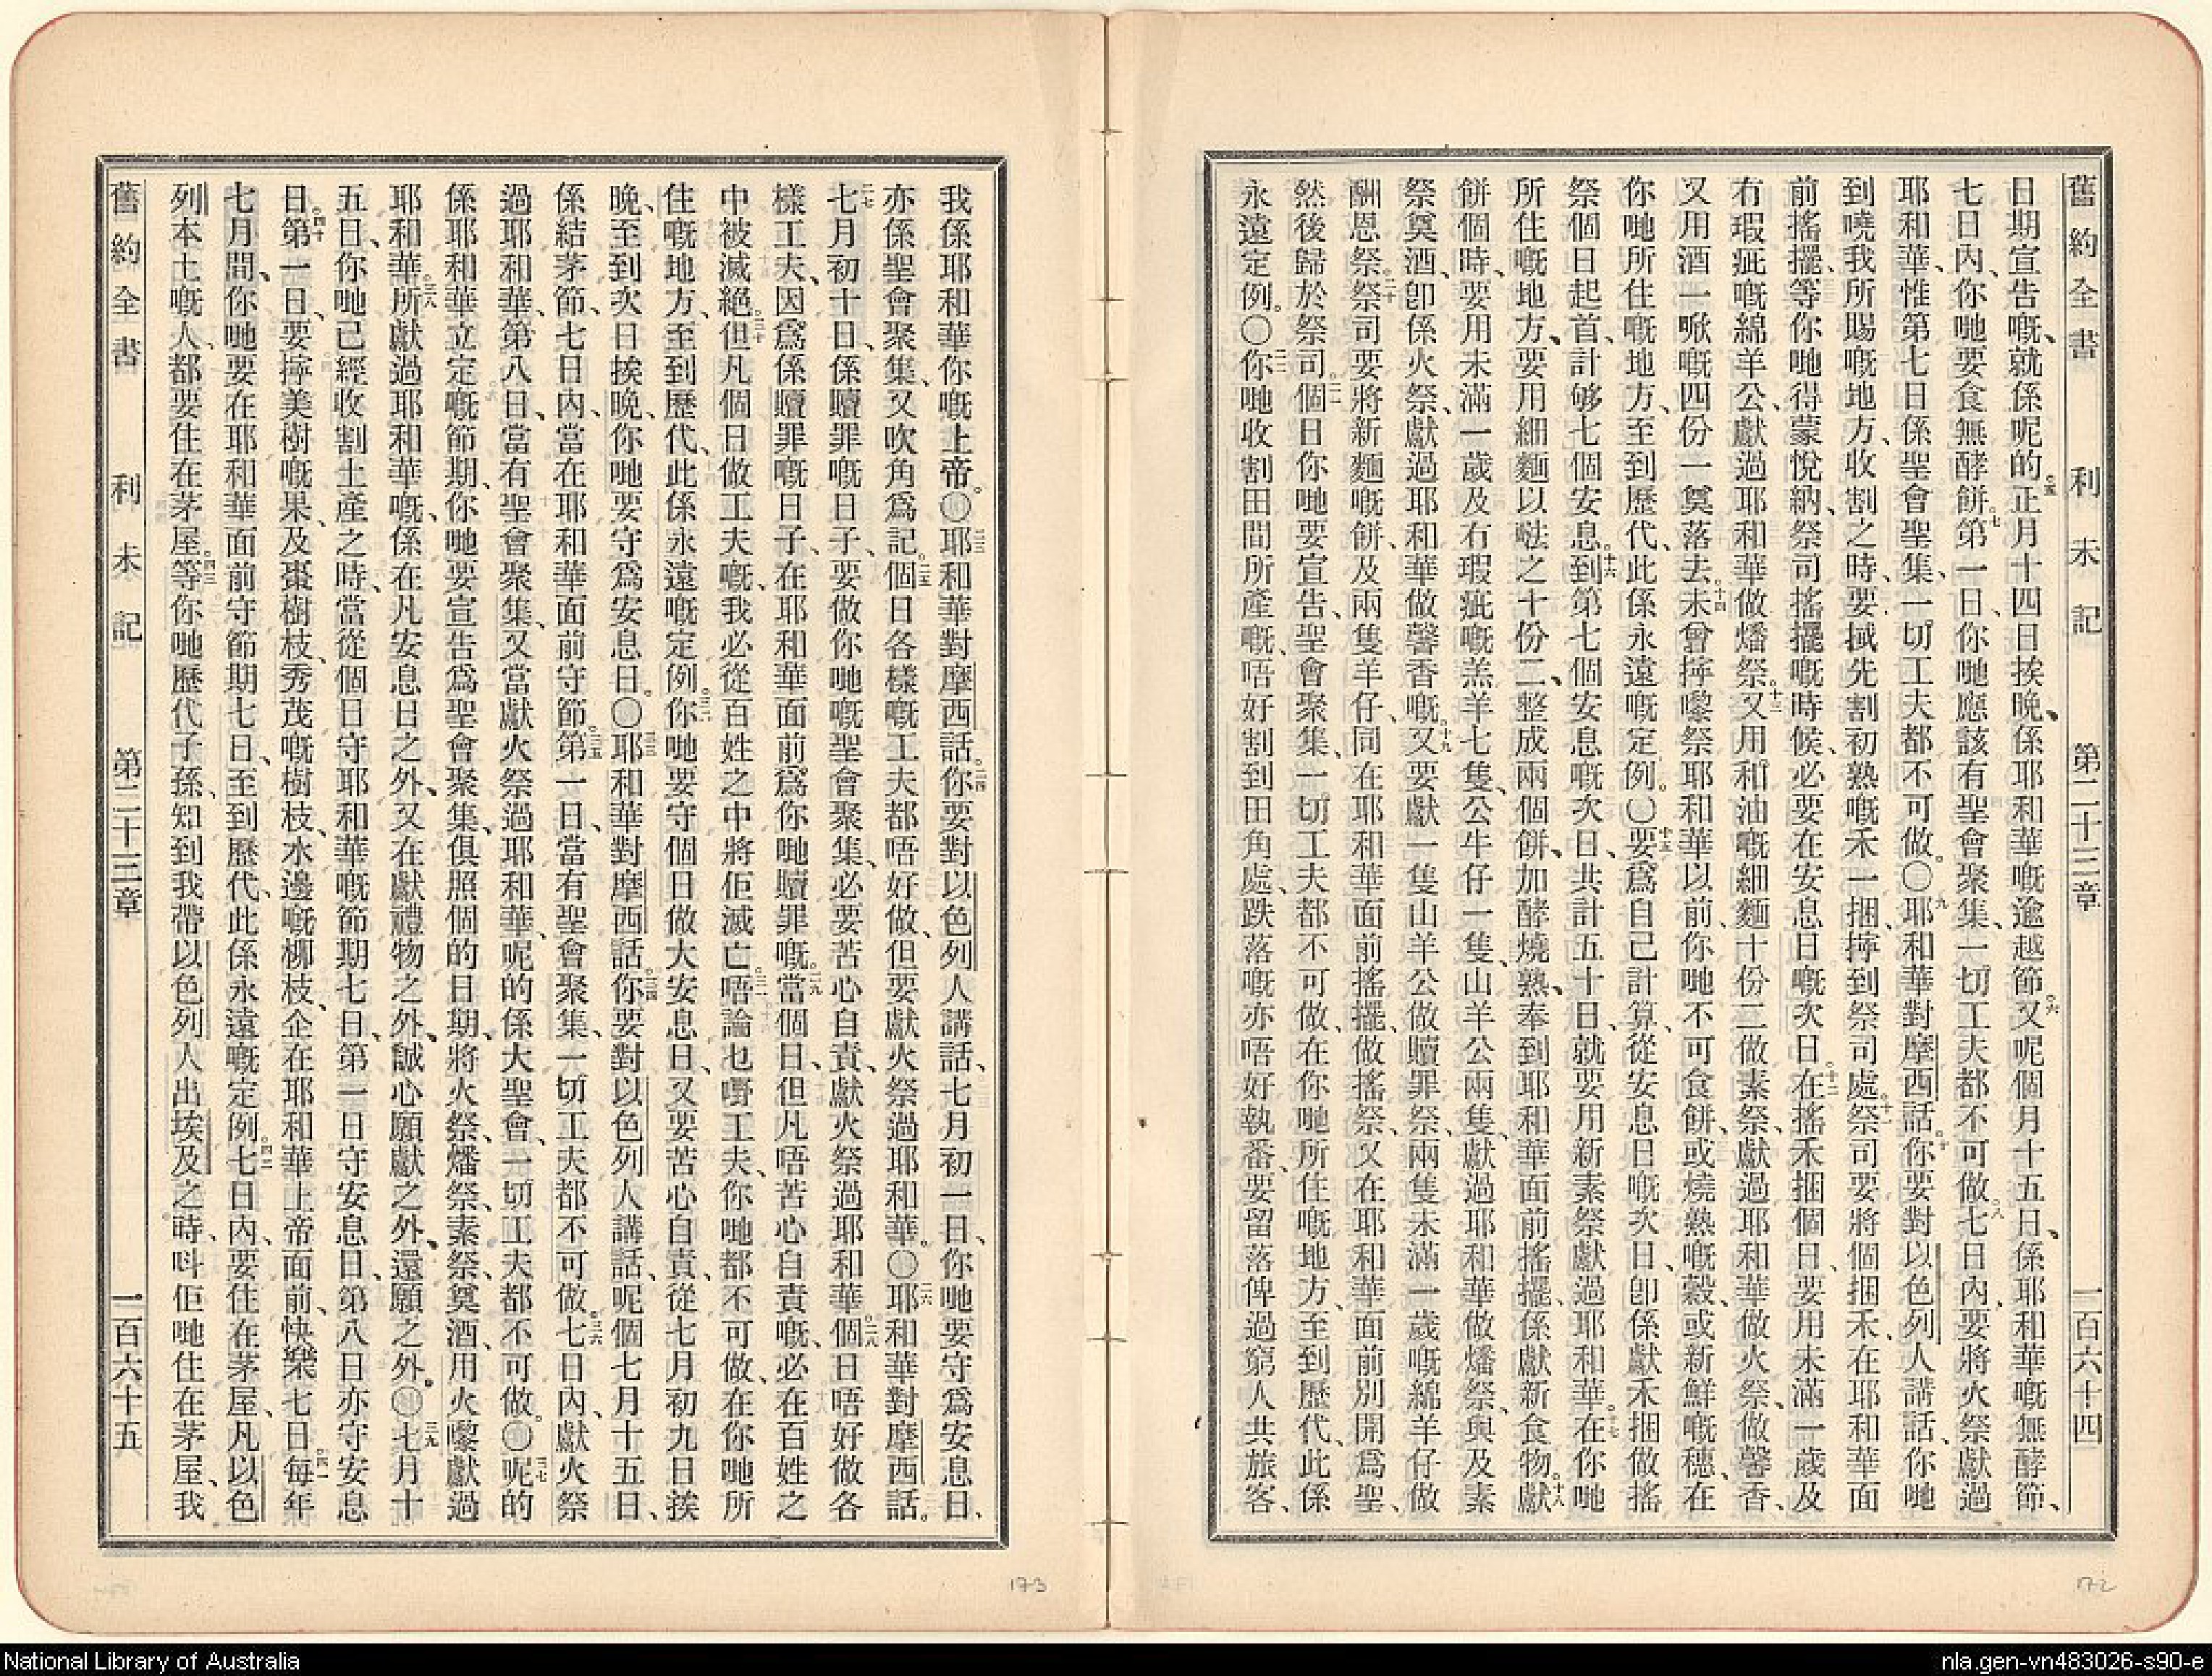 舊約全書 利未記 第二十三章 一百六十四
日期宣告嘅、就係呢的。五正月十四日挨晚、係耶和華嘅逾越節。六又呢個月十五日、係耶和華嘅無酵節、
七日內、你哋要食無酵餅。七第一日、你哋應該有聖會聚集、一切工夫都不可做。八七日內、要將火祭獻過
耶和華、惟第七日係聖會聖集、一切工夫都不可做。〇九耶和華對摩西話。十你要對以色列人講話、你哋
到曉我所賜嘅地方、收割之時、要搣先割初熟嘅禾一捆、擰到祭司處。十一祭司要將個捆禾、在耶和華面
前搖擺、等你哋得蒙悅納、祭司搖擺嘅時候、必要在安息日嘅次日。十二在搖禾捆個日、要用未滿一歲及
冇瑕疵嘅綿羊公、獻過耶和華做燔祭。十三又用和油嘅細麵十份二做素祭、獻過耶和華做火祭、做馨香、
又用酒一㗾嘅四份一奠落去。十四未曾擰嚟祭耶和華以前、你哋不可食餅、或燒熱嘅穀、或新鮮嘅穗、在
你哋所住嘅地方、至到歷代、此係永遠嘅定例。〇十五要爲自己計算、從安息日嘅次日、卽係獻禾捆做搖
祭個日起首、計够七個安息。十六到第七個安息嘅次日、共計五十日、就要用新素祭獻過耶和華。十七在你哋
所住嘅地方、要用細麵以𠸉之十份二、整成兩個餅、加酵燒熟、奉到耶和華面前搖擺、係獻新食物。十八獻
餅個時、要用未滿一歲及冇瑕疵嘅羔羊七隻、公牛仔一隻、山羊公兩隻、獻過耶和華做燔祭、與及素
祭奠酒、卽係火祭、獻過耶和華做馨香嘅。十九又要獻一隻山羊公做贖罪祭、兩隻未滿一歲嘅綿羊仔做
酬恩祭。二十祭司要將新麵嘅餅、及兩隻羊仔、同在耶和華面前搖擺、做搖祭、又在耶和華面前別開爲聖、
然後歸於祭司。二一個日你哋要宣告、聖會聚集、一切工夫都不可做、在你哋所住嘅地方、至到歷代、此係
永遠定例。〇二二你哋收割田間所產嘅、唔好割到田角處、跌落嘅亦唔好執番、要留落俾過窮人共旅客、
我係耶和華你嘅上帝。〇二三耶和華對摩西話。二四你要對以色列人講話、七月初一日、你哋要守爲安息日、
亦係聖會聚集、又吹角爲記。二五個日各樣嘅工夫都唔好做、但要獻火祭過耶和華。〇二六耶和華對摩西話。
二七七月初十日、係贖罪嘅日子、要做你哋嘅聖會聚集、必要苦心自責、獻火祭過耶和華。二八個日唔好做各
樣工夫、因爲係贖罪嘅日子、在耶和華面前、爲你哋贖罪嘅。二九當個日、但凡唔苦心自責嘅、必在百姓之
中被滅絕。三十但凡個日做工夫嘅、我必從百姓之中將佢滅亡。三一唔論乜嘢工夫、你哋都不可做、在你哋所
住嘅地方、至到歷代、此係永遠嘅定例。三二你哋要守個日做大安息日、又要苦心自責、從七月初九日挨
晚、至到次日挨晚、你哋要守爲安息日。〇三三耶和華對摩西話。三四你要對以色列人講話、呢個七月十五日、
係結茅節、七日內、當在耶和華面前守節。三五第一日、當有聖會聚集、一切工夫都不可做。三六七日內、獻火祭
過耶和華、第八日、當有聖會聚集、又當獻火祭過耶和華、呢的係大聖會、一切工夫都不可做。〇三七呢的
係耶和華立定嘅節期、你哋要宣告爲聖會聚集、俱照個的日期、將火祭、燔祭、素祭、奠酒、用火嚟獻過
耶和華。三八所獻過耶和華嘅、係在凡安息日之外、又在獻禮物之外、誠心願獻之外、還願之外。〇三九七月十
五日、你哋已經收割土產之時、當從個日守耶和華嘅節期七日、第一日守安息日、第八日亦守安息
日。四十第一日、要擰美樹嘅果、及棗樹枝、秀茂嘅樹枝、水邊嘅柳枝、企在耶和華上帝面前、快樂七日。四一每年
七月間、你哋要在耶和華面前守節期七日、至到歷代、此係永遠嘅定例。四二七日內、要住在茅屋、凡以色
列本土嘅人、都要住在茅屋。四三等你哋歷代子孫、知到我帶以色列人出埃及之時、呌佢哋住在茅屋、我
舊約全書 利未記 第二十三章 一百六十五
173
172
National Library of Australia
nla.gen-vn483026-s90-e